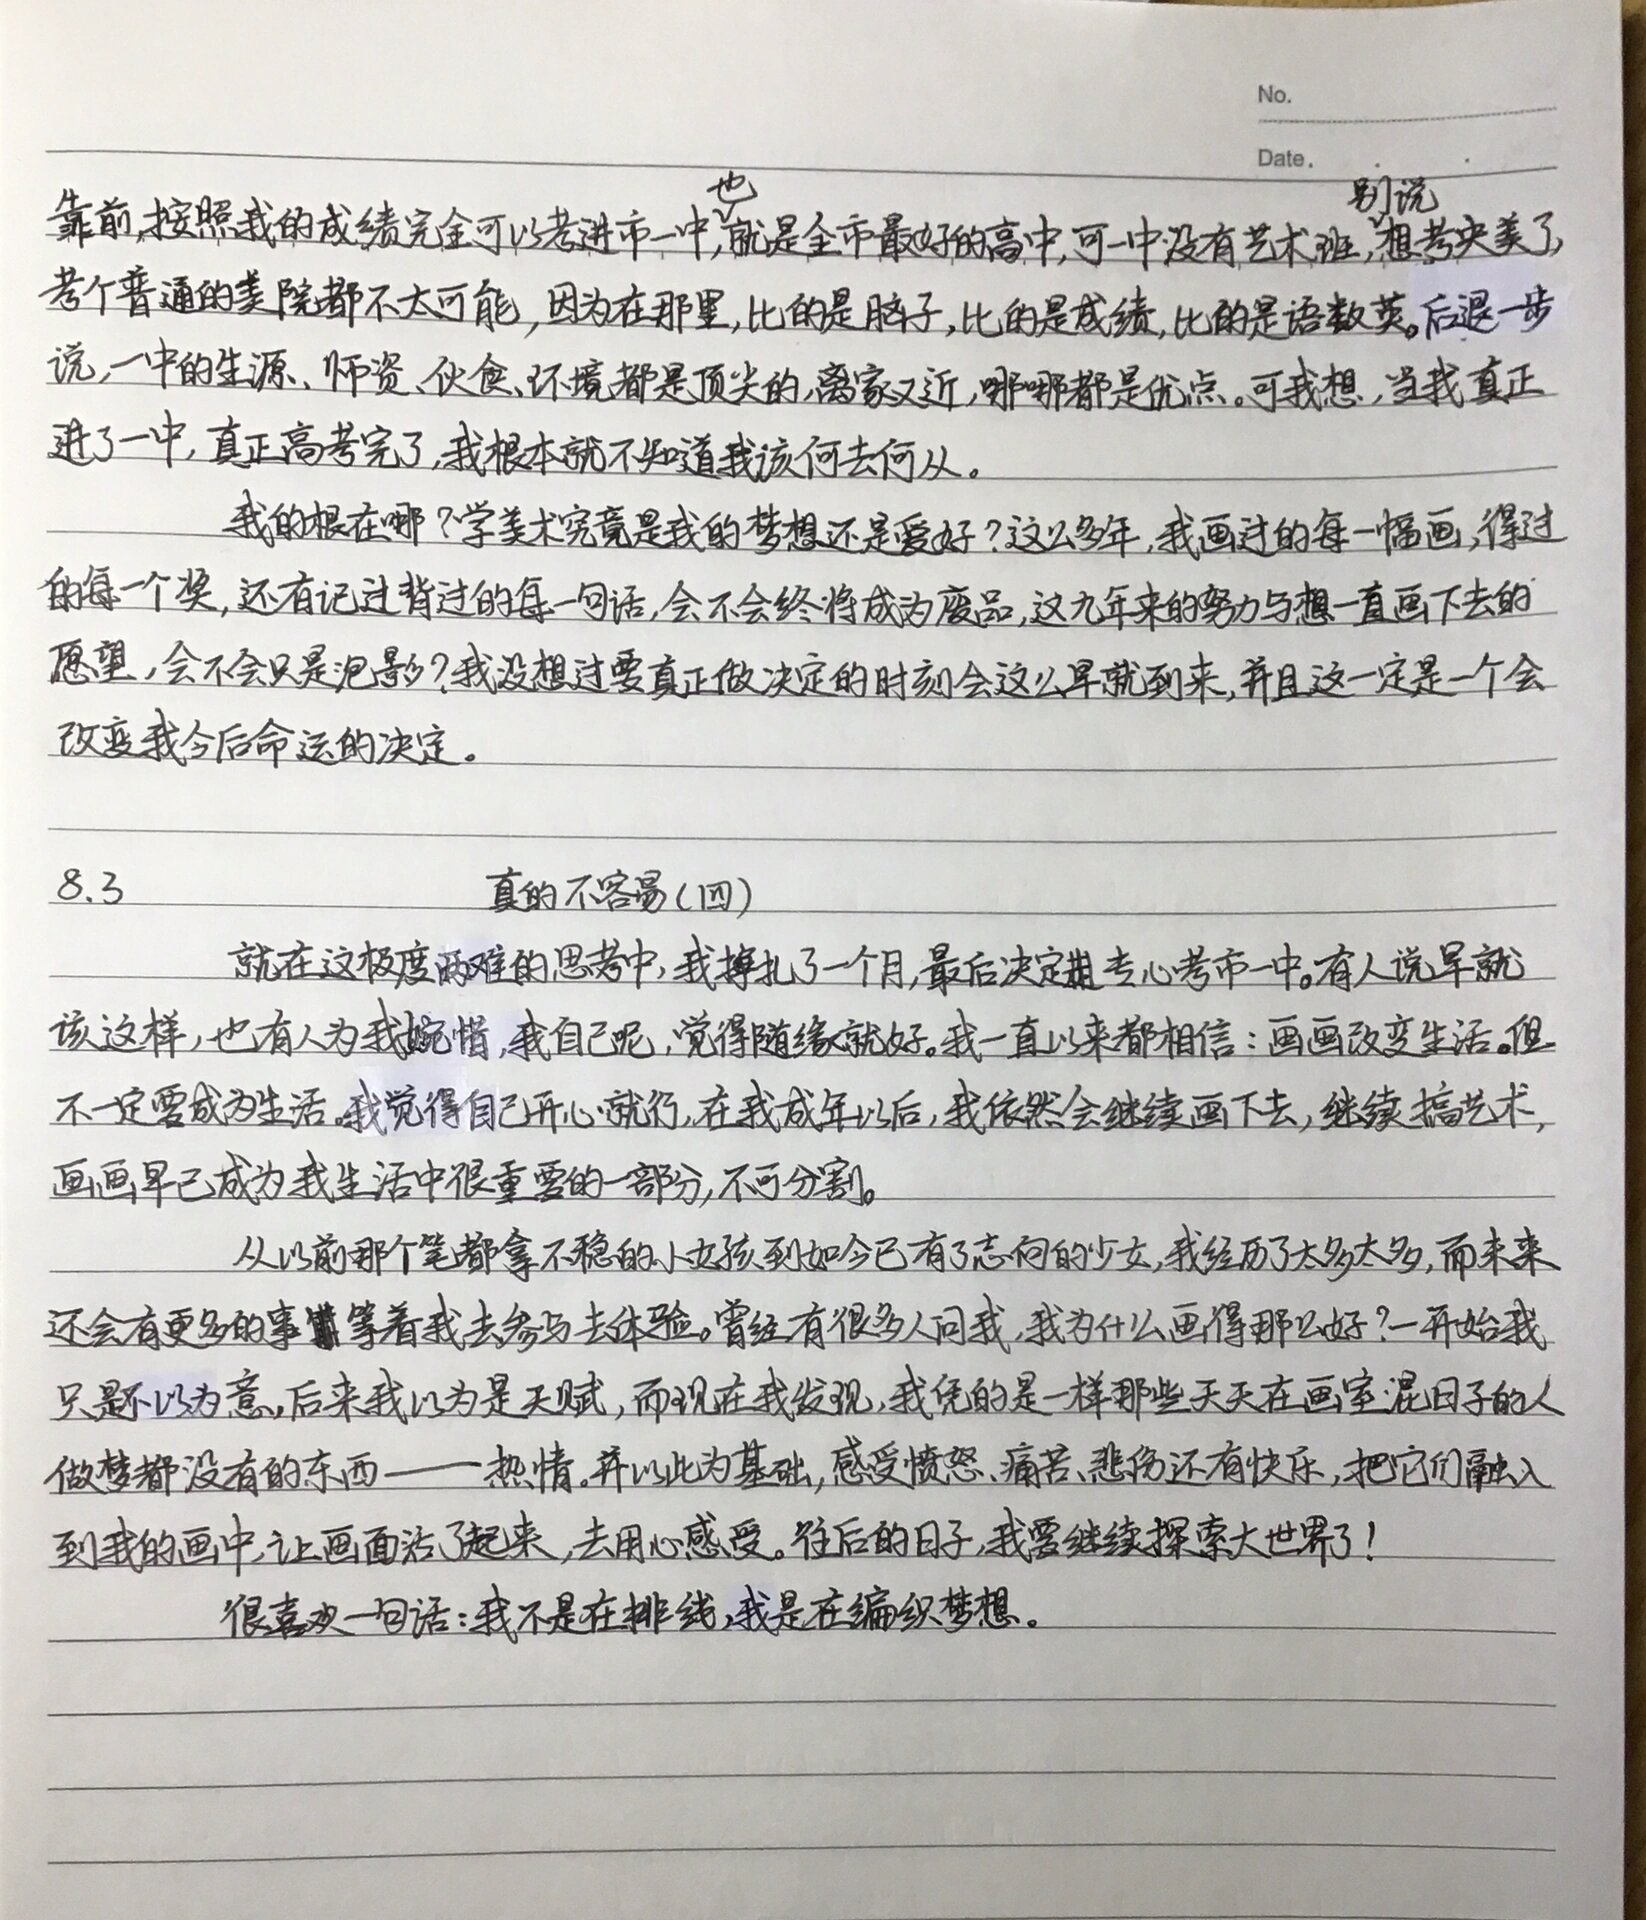 No.
Date.
靠前，按照我的成绩完全可以考进市一中，也就是全市最好的高中，可一中没有艺术班，别说想考央美了，
考个普通的美院都不太可能，因为在那里，比的是脑子，比的是成绩，比的是语数英。后退一步
说，一中的生源、师资、伙食、环境都是顶尖的，离家又近，哪哪都是优点。可我想，当我真正
进了一中，真正高考完了，我根本就不知道我该何去何从。
我的根在哪？学美术究竟是我的梦想还是爱好？这么多年，我画过的每一幅画，得过
的每一个奖，还有记过背过的每一句话，会不会终将成为废品，这九年来的努力与想一直画下去的
愿望，会不会只是泡影？我没想过要真正做决定的时刻会这么早就到来，并且这一定是一个会
改变我今后命运的决定。
8.3 真的不容易（四）
就在这极度两难的思考中，我挣扎了一个月，最后决定专心考市一中。有人说早就
该这样，也有人为我婉惜，我自己呢，觉得随缘就好。我一直以来都相信：画画改变生活。但
不一定要成为生活。我觉得自己开心就行，在我成年以后，我依然会继续画下去，继续搞艺术，
画画早已成为我生活中很重要的一部分，不可分割。
从以前那个笔都拿不稳的小女孩到如今已有了志向的少女，我经历了太多太多，而未来
还会有更多的事等着我去参与去体验。曾经有很多人问我，我为什么画得那么好？一开始我
只是不以为意，后来我以为是天赋，而现在我发现，我凭的是一样那些天天在画室混日子的人
做梦都没有的东西——热情。并以此为基础，感受愤怒、痛苦、悲伤还有快乐，把它们融入
到我的画中，让画面活了起来，去用心感受。往后的日子，我要继续探索大世界了！
很喜欢一句话：我不是在排线，我是在编织梦想。